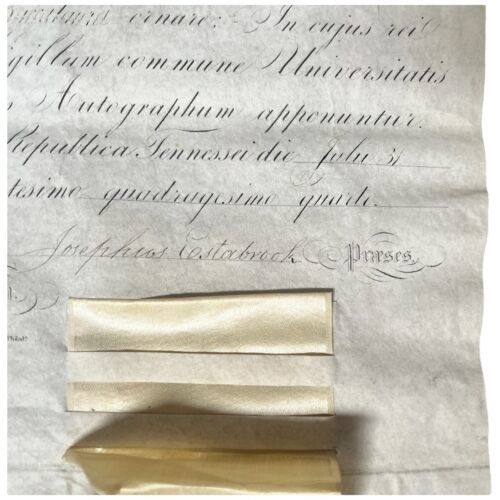 ornare: In cujus rei
igillum commune Universitatis
s Autographum apponuntur.
Republica Tennessei die Julii 31
tesimo quadragesimo quarto
Josephus Estabrook Præses.
Philad?